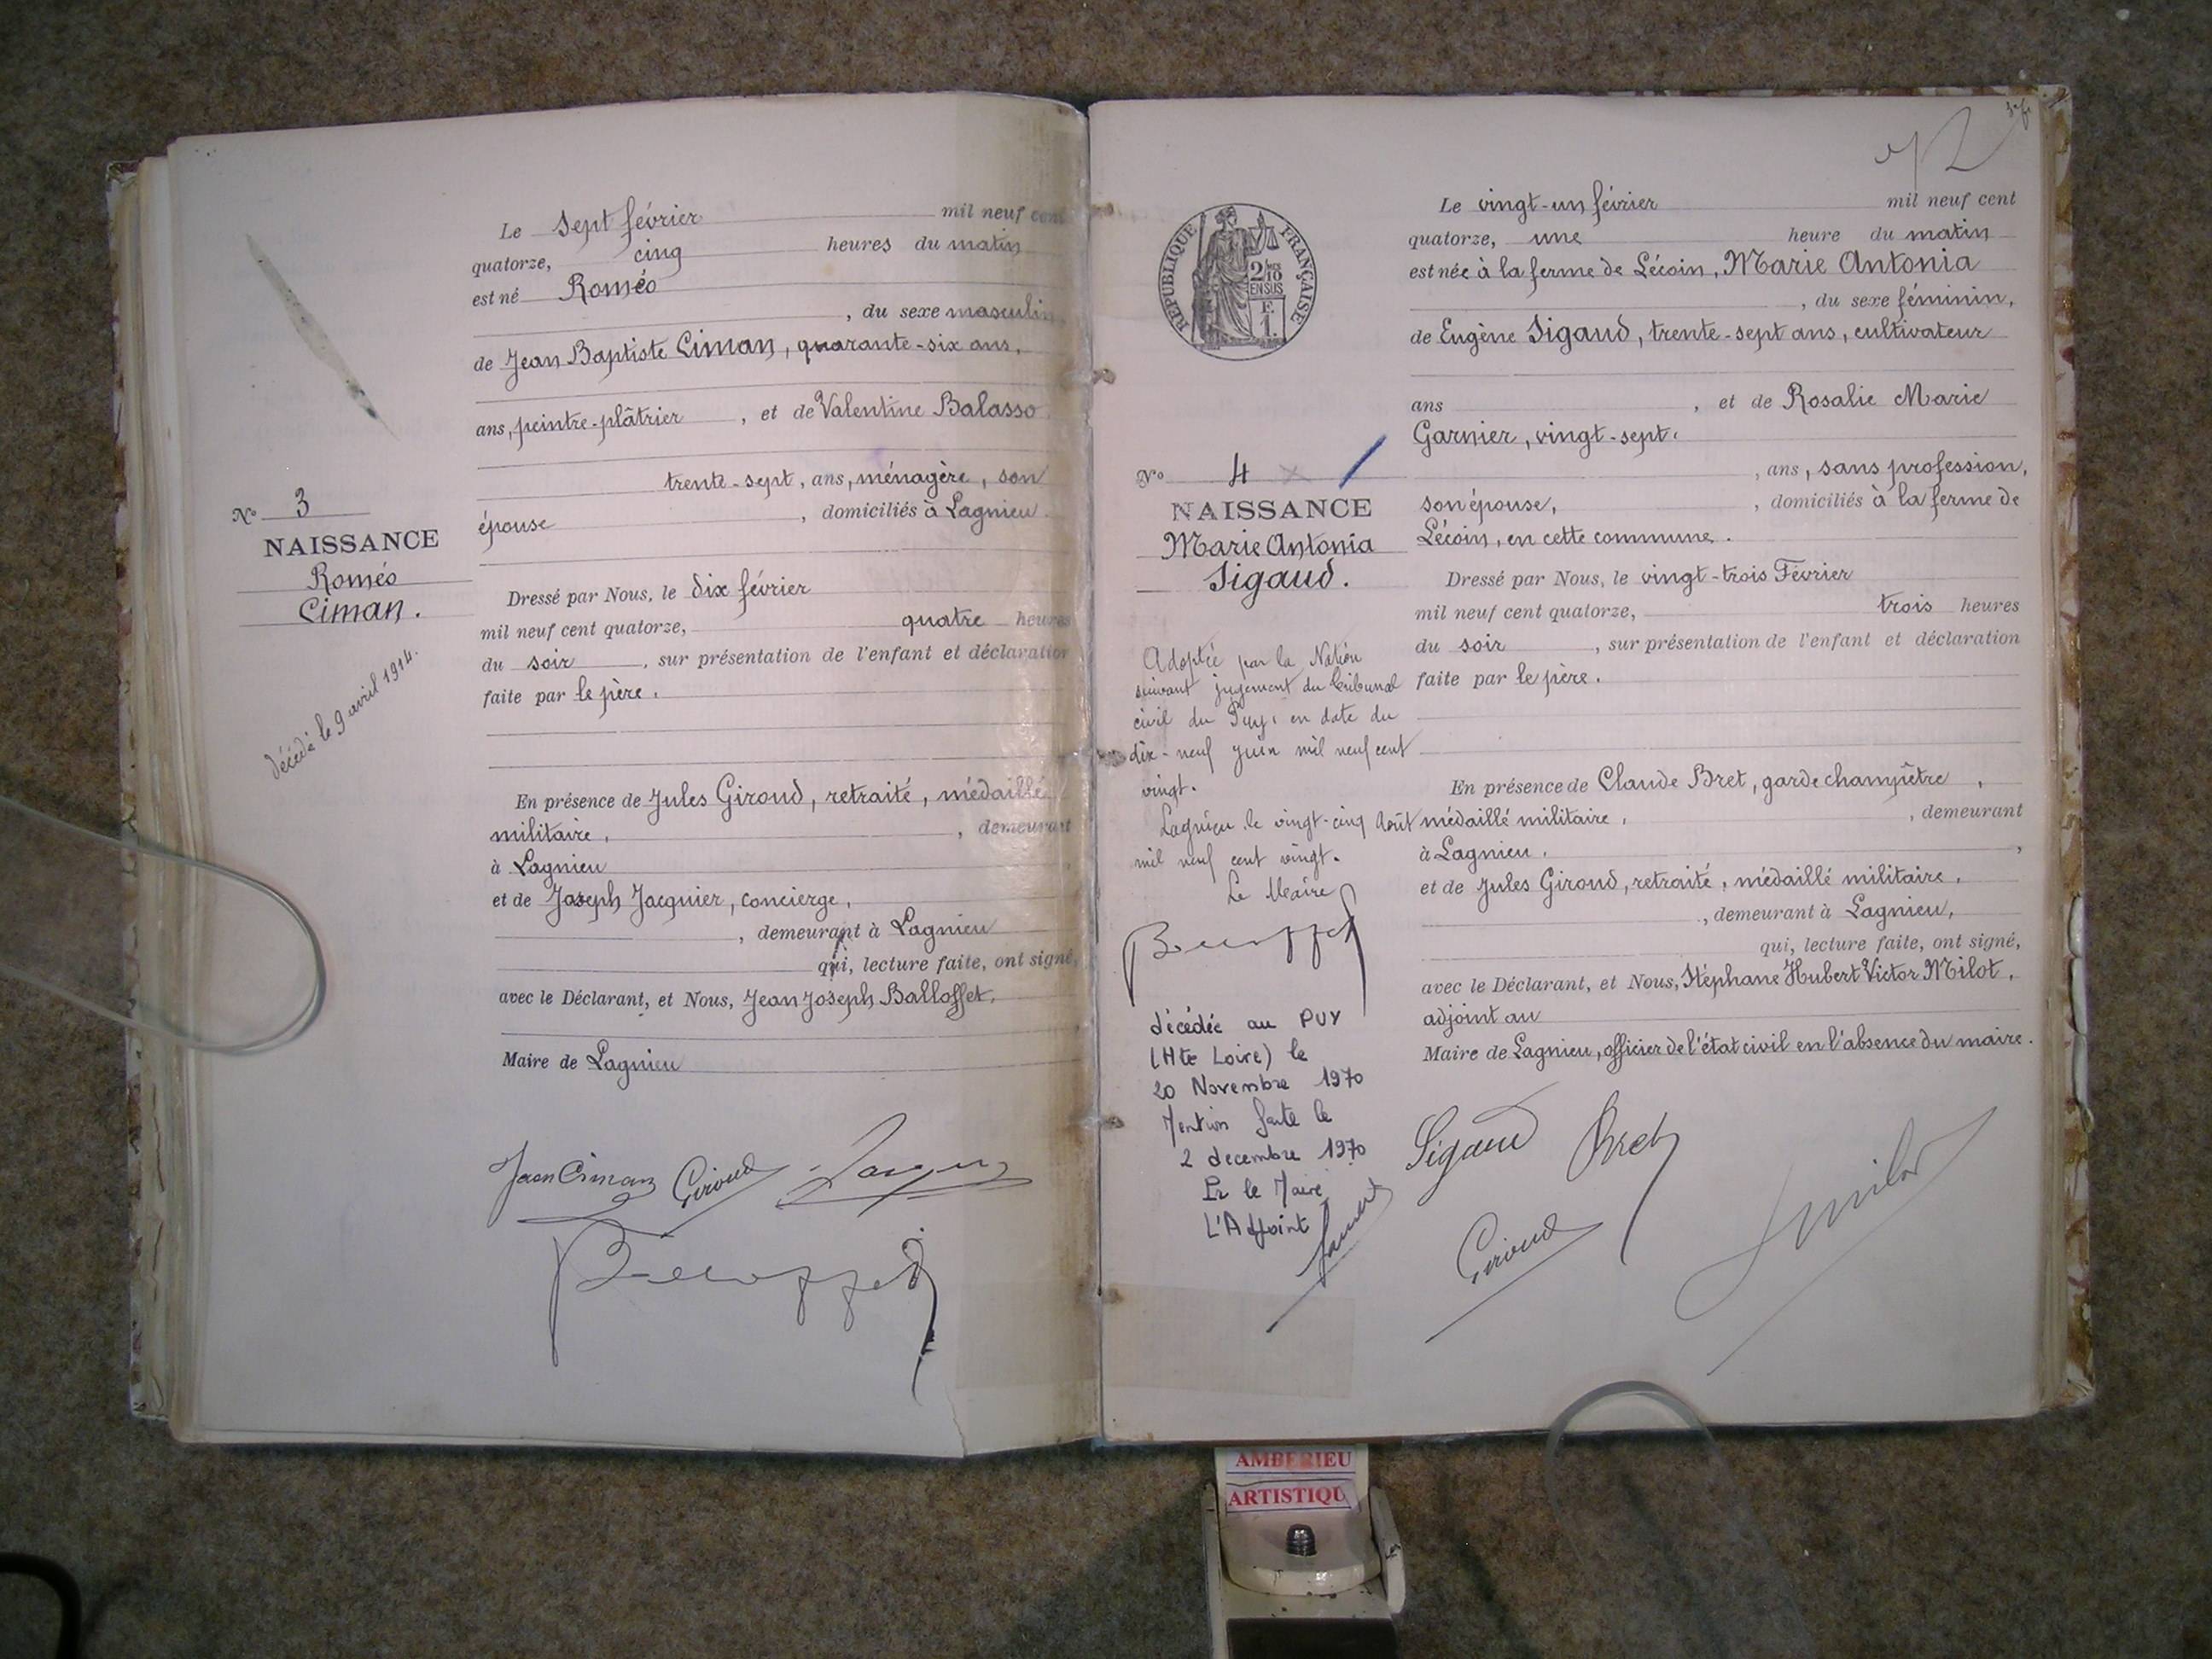 Le sept février mil neuf cent
quatorze, cinq heures du matin
est né Roméo
, du sexe masculin,
de Jean Baptiste Ciman, quarante-six ans,
ans, peintre-plâtrier, et de Valentine Balasso
trente-sept, ans, ménagère, son
épouse, domiciliés à Lagnieu.
N° 3
NAISSANCE
Roméo
Ciman.
décédé le 9 avril 1914.
Dressé par Nous, le dix février
mil neuf cent quatorze, quatre heures
du soir, sur présentation de l'enfant et déclaration
faite par le père.
En présence de Jules Giroud, retraité, médaillé
militaire, , demeurant
à Lagnieu
et de Joseph Jacquier, concierge,
, demeurant à Lagnieu
qui, lecture faite, ont signé,
avec le Déclarant, et Nous, Jean Joseph Balloffet,
Maire de Lagnieu
Jean Ciman Giroud Jacquier
Balloffet
RÉPUBLIQUE FRANÇAISE
2/10
EN SUS
Le vingt-un février mil neuf cent
quatorze, une heure du matin
est née à la ferme de Lécoin, Marie Antonia
, du sexe féminin,
de Eugène Sigaud, trente-sept ans, cultivateur
ans, et de Rosalie Marie
Garnier, vingt-sept,
, ans, sans profession,
son épouse, , domiciliés à la ferme de
Lécoin, en cette commune.
N° 4
NAISSANCE
Marie Antonia
Sigaud.
Adoptée par la Nation
suivant jugement du tribunal
civil du Puy, en date du
dix-neuf juin mil neuf cent
vingt.
Lagnieu, le vingt-cinq Août
mil neuf cent vingt.
Le Maire
Balloffet
décédée au PUY
(Hte Loire) le
20 Novembre 1970
Mention faite le
2 decembre 1970
Pr le Maire
L'Adjoint
Dressé par Nous, le vingt-trois Février
mil neuf cent quatorze, trois heures
du soir, sur présentation de l'enfant et déclaration
faite par le père.
En présence de Claude Bret, garde champêtre,
médaillé militaire, , demeurant
à Lagnieu,
et de Jules Giroud, retraité, médaillé militaire,
, demeurant à Lagnieu,
qui, lecture faite, ont signé,
avec le Déclarant, et Nous, Stéphane Hubert Victor Milot,
adjoint au
Maire de Lagnieu, officier de l'état civil en l'absence du maire.
Sigaud Bret
Giroud Smilot
AMBERIEU
ARTISTIQU